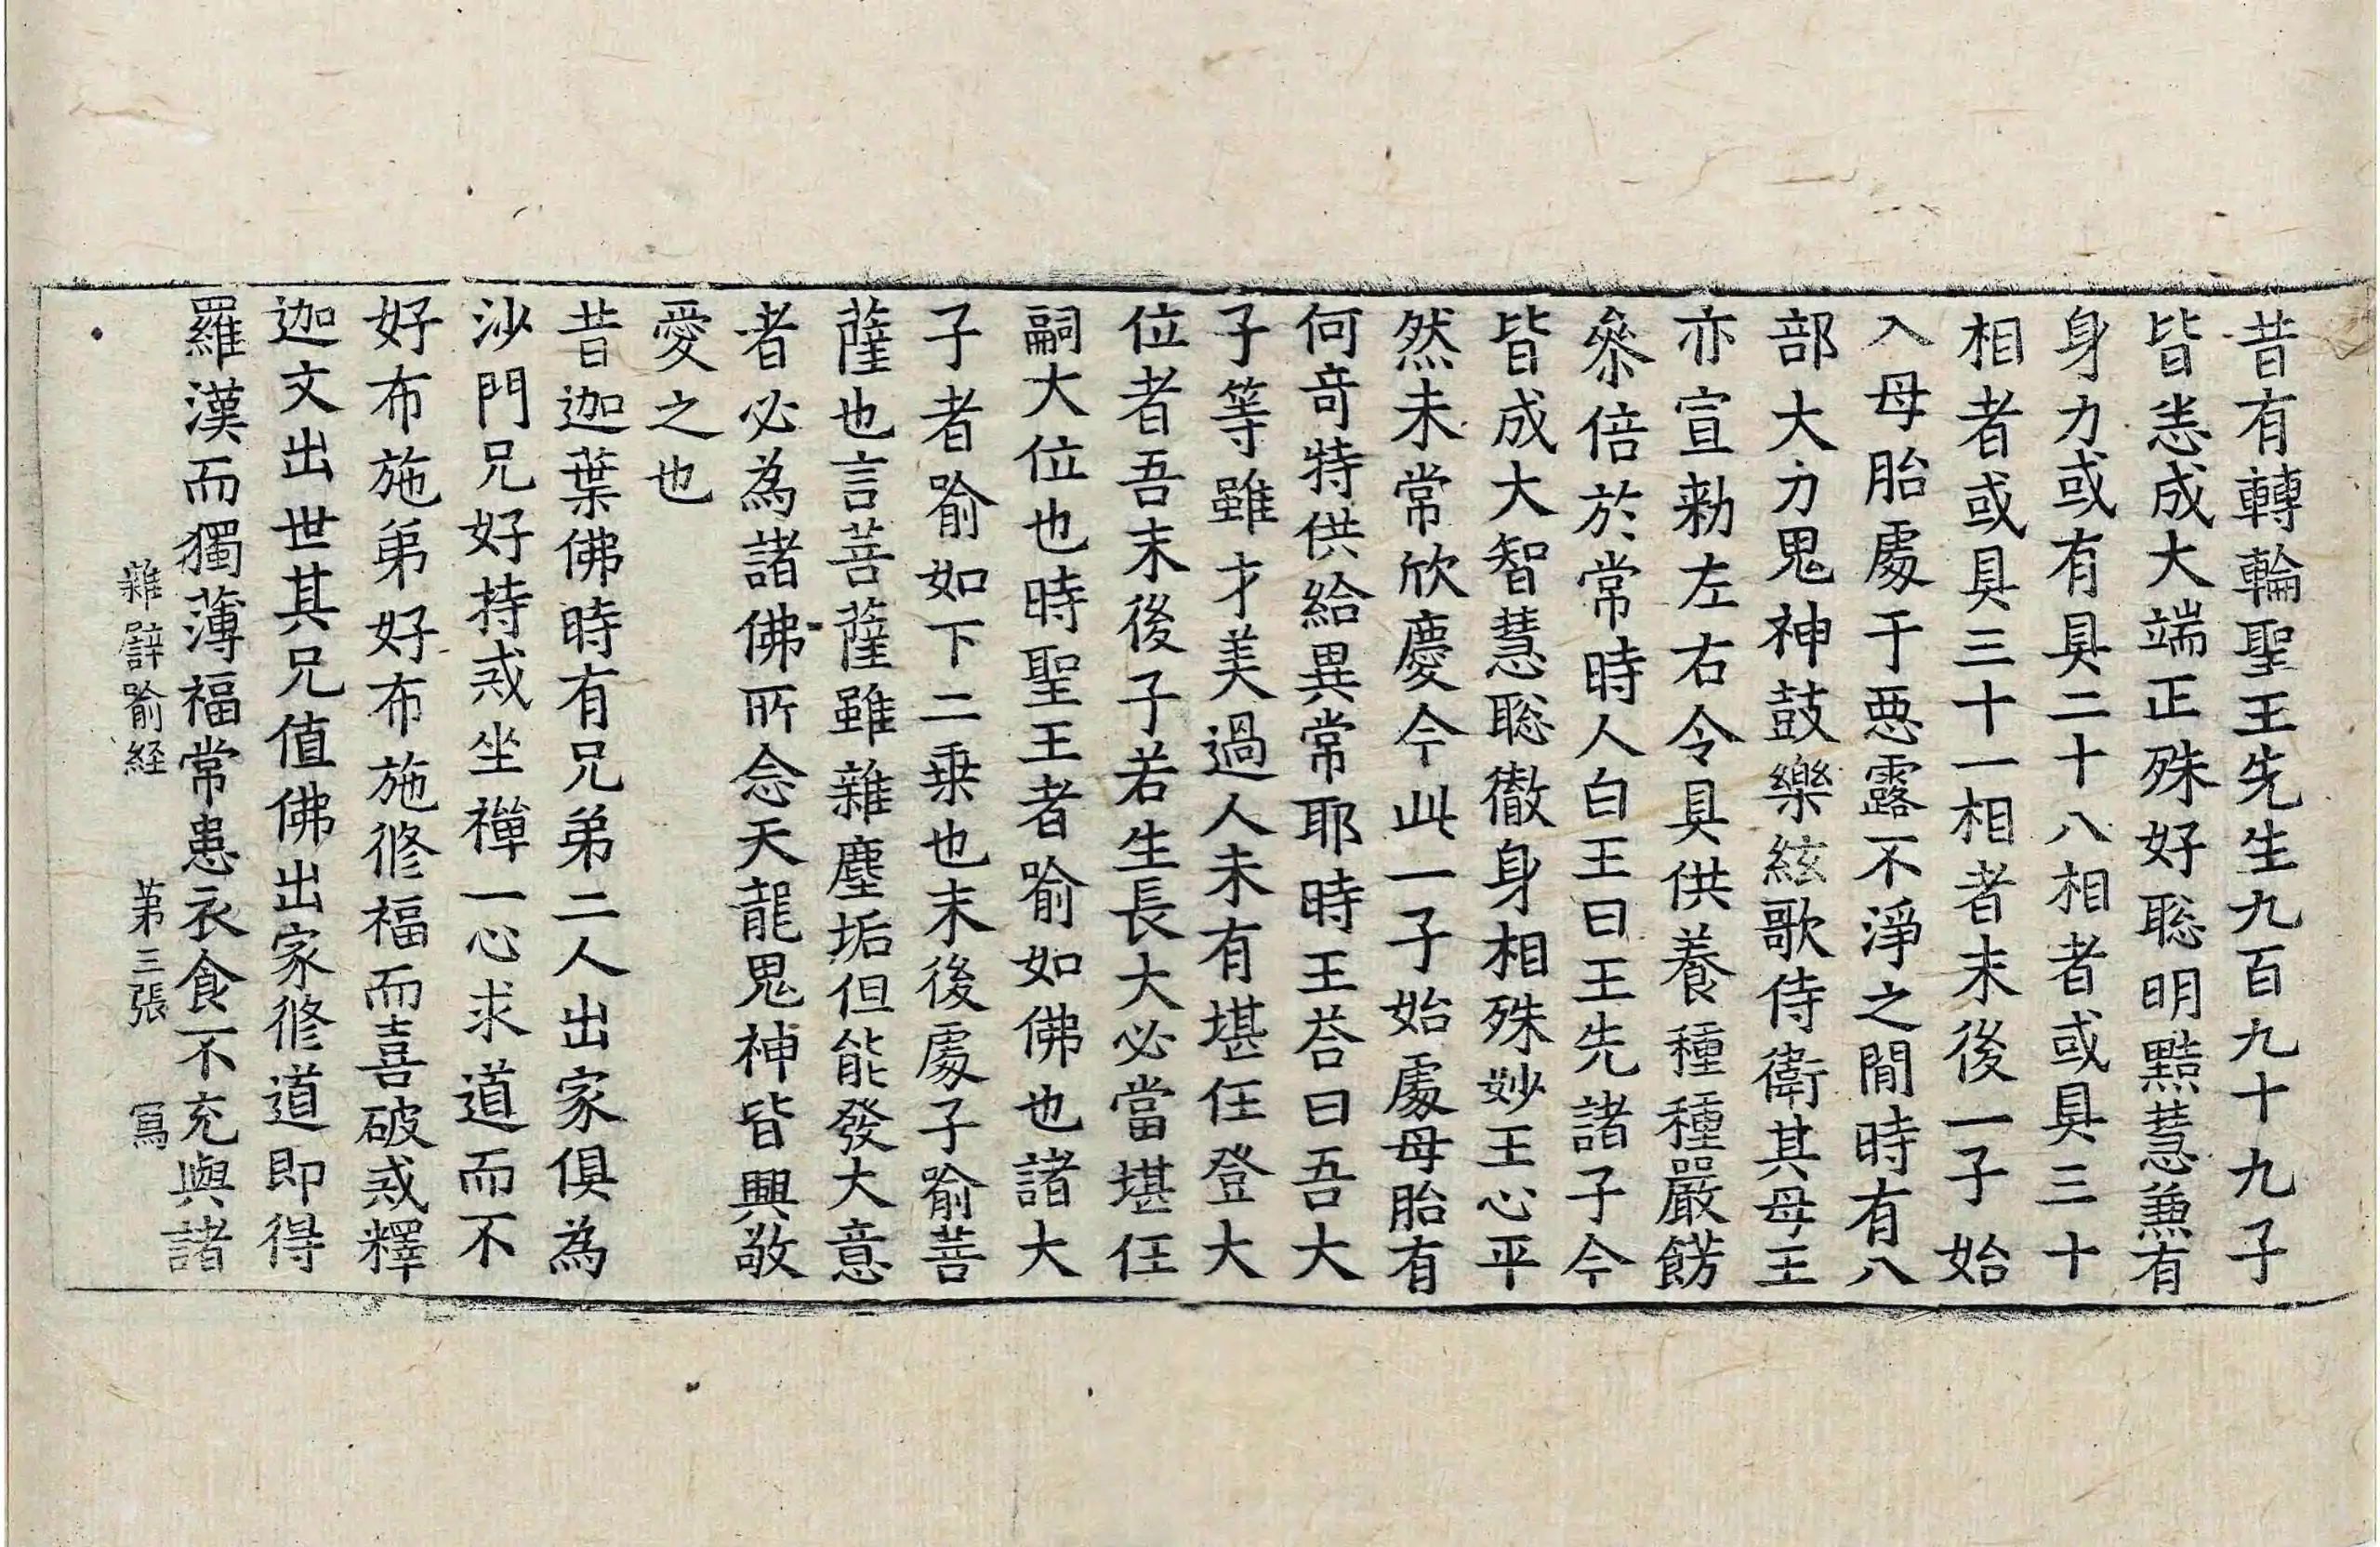 昔有轉輪聖王先生九百九十九子
皆悉成大端正殊好聡明黠慧兼有
身力或有具二十八相者或具三十
相者或具三十一相者末後一子始
入母胎處于惡露不淨之閒時有八
部大力鬼神鼓樂絃歌侍衛其母王
亦宣勑左右令具供養種種嚴餝
叅倍於常時人白王曰王先諸子今
皆成大智慧聡徹身相殊妙王心平
然未常欣慶今此一子始處母胎有
何奇特供給異常耶時王荅曰吾大
子等雖才美過人未有堪任登大
位者吾末後子若生長大必當堪任
嗣大位也時聖王者喻如佛也諸大
子者喻如下二乗也末後處子喻菩
薩也言菩薩雖雜塵垢但能發大意
者必為諸佛所念天龍鬼神皆興敬
愛之也
昔迦葉佛時有兄弟二人出家俱為
沙門兄好持戒坐禪一心求道而不
好布施弟好布施修福而喜破戒釋
迦文出世其兄值佛出家修道即得
羅漢而獨薄福常患衣食不充與諸
雜譬喻経　第三張　寫